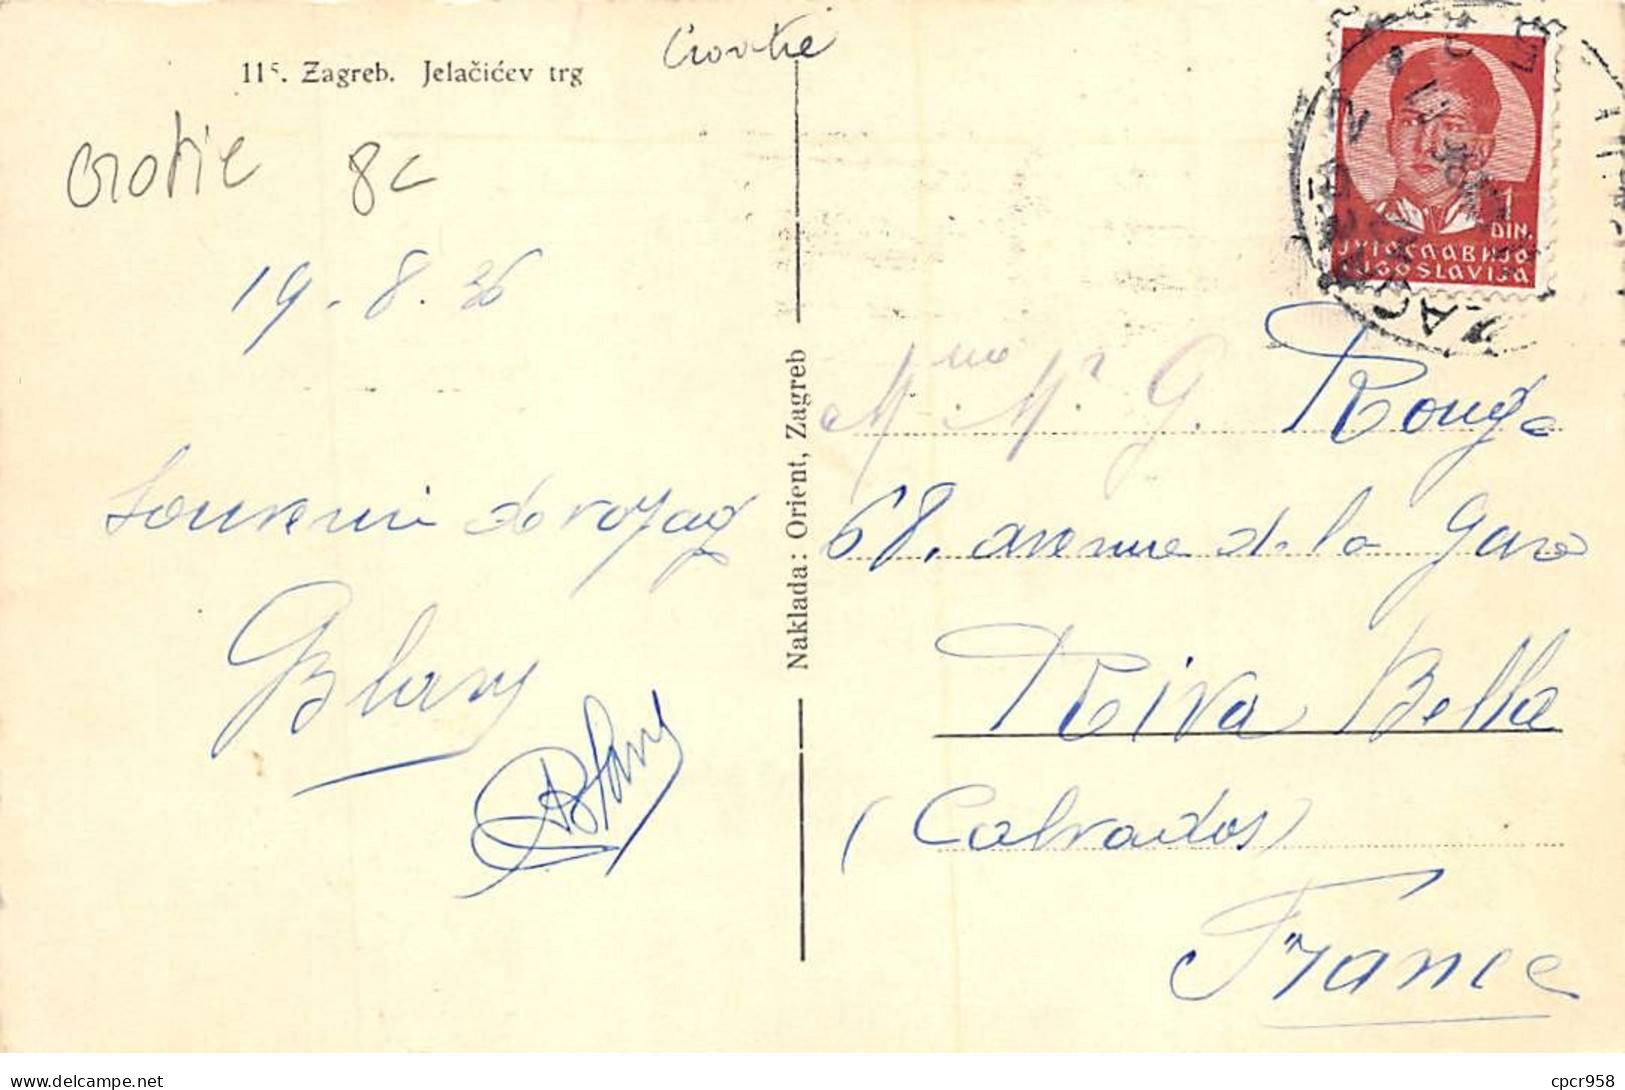 115. Zagreb. Jelačićev trg
Croatie
Crotie 8c
19.8.36
Souvenir de voyage
Blany
Blany
Naklada: Orient, Zagreb
1
DIN.
ЈУГОСЛАВИЈА
JUGOSLAVIJA
ZAGREB
Mme Mr G. Rouge
68. avenue de la Gare
Riva Bella
(Calvados)
France
delcampe.net
cpcr958